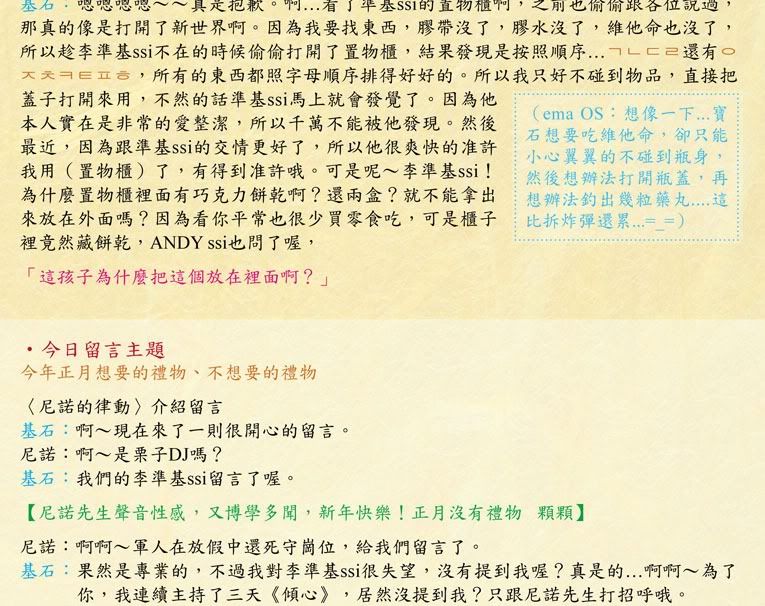 基石：嗯嗯嗯嗯～～真是抱歉。啊…看了準基ssi的置物櫃啊，之前也偷偷跟各位說過，
那真的像是打開了新世界啊。因為我要找東西，膠帶沒了，膠水沒了，維他命也沒了，
所以趁李準基ssi不在的時候偷偷打開了置物櫃，結果發現是按照順序…ㄱㄴㄷㄹ還有ㅇ
ㅈㅊㅋㅌㅍㅎ，所有的東西都照字母順序排得好好的。所以我只好不碰到物品，直接把
蓋子打開來用，不然的話準基ssi馬上就會發覺了。因為他
本人實在是非常的愛整潔，所以千萬不能被他發現。然後
最近，因為跟準基ssi的交情更好了，所以他很爽快的准許
我用（置物櫃）了，有得到准許哦。可是呢～李準基ssi！
為什麼置物櫃裡面有巧克力餅乾啊？還兩盒？就不能拿出
來放在外面嗎？因為看你平常也很少買零食吃，可是櫃子
裡竟然藏餅乾，ANDY ssi也問了喔，
（ema OS：想像一下…寶
石想要吃維他命，卻只能
小心翼翼的不碰到瓶身，
然後想辦法打開瓶蓋，再
想辦法釣出幾粒藥丸....這
比拆炸彈還累...=_=）
「這孩子為什麼把這個放在裡面啊？」
・今日留言主題
今年正月想要的禮物、不想要的禮物
〈尼諾的律動〉介紹留言
基石：啊～現在來了一則很開心的留言。
尼諾：啊～是栗子DJ嗎？
基石：我們的李準基ssi留言了喔。
【尼諾先生聲音性感，又博學多聞，新年快樂！正月沒有禮物　顆顆】
尼諾：啊啊～軍人在放假中還死守崗位，給我們留言了。
基石：果然是專業的，不過我對李準基ssi很失望，沒有提到我喔？真是的…啊啊～為了
你，我連續主持了三天《傾心》，居然沒提到我？只跟尼諾先生打招呼哦。